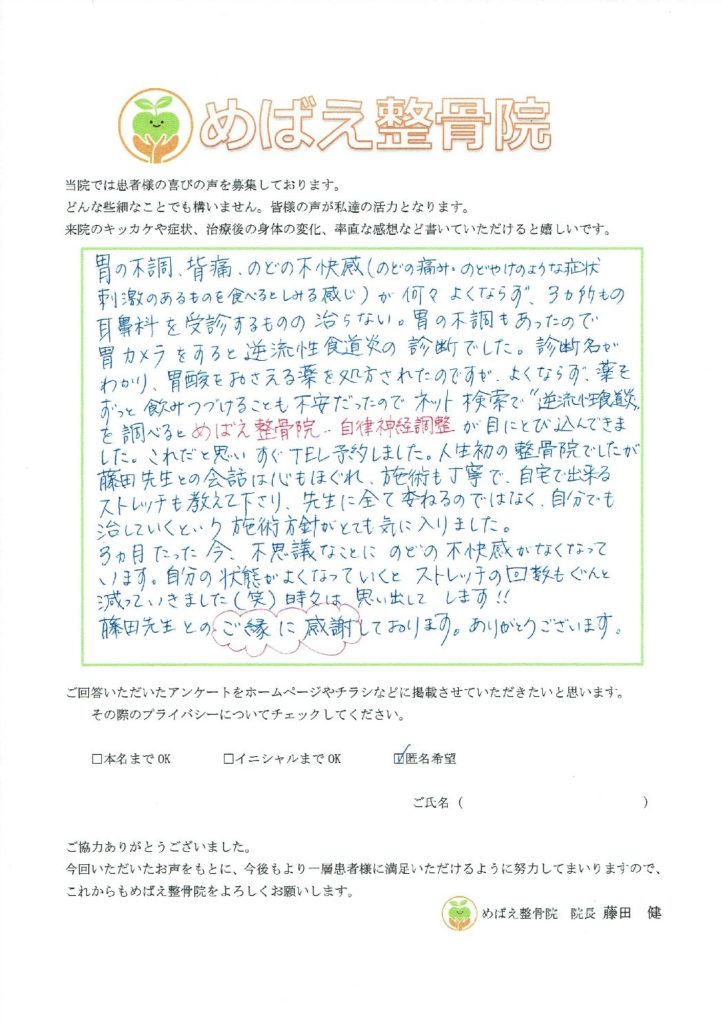 めばえ整骨院
当院では患者様の喜びの声を募集しております。
どんな些細なことでも構いません。皆様の声が私達の活力となります。
来院のキッカケや症状、治療後の身体の変化、率直な感想など書いていただけると嬉しいです。
胃の不調、背痛、のどの不快感(のどの痛み・のどやけのような症状
刺激のあるものを食べるとしみる感じ)が何々よくならず、3ヵ所もの
耳鼻科を受診するものの治らない。胃の不調もあったので
胃カメラをすると逆流性食道炎の診断でした。診断名が
わかり、胃酸をおさえる薬を処方されたのですが、よくならず、薬を
ずっと飲みつづけることも不安だったのでネット検索で"逆流性食道炎"
を調べるとめばえ整骨院‥自律神経調整が目にとび込んできま
した。これだと思いすぐTEL予約しました。人生初の整骨院でしたが
藤田先生との会話は心もほぐれ、施術も丁寧で、自宅で出来る
ストレッチも教えて下さり、先生に全て委ねるのではなく、自分でも
治していくという施術方針がとても気に入りました。
3ヵ月たった今、不思議なことにのどの不快感がなくなって
います。自分の状態がよくなっていくとストレッチの回数もぐんと
減っていきました(笑)時々は思い出してします!!
藤田先生とのご縁に感謝しております。ありがとうございます。
ご回答いただいたアンケートをホームページやチラシなどに掲載させていただきたいと思います。
その際のプライバシーについてチェックしてください。
□本名までOK □イニシャルまでOK ☑匿名希望
ご氏名( )
ご協力ありがとうございました。
今回いただいたお声をもとに、今後もより一層患者様に満足いただけるように努力してまいりますので、
これからもめばえ整骨院をよろしくお願いします。
めばえ整骨院 院長 藤田 健